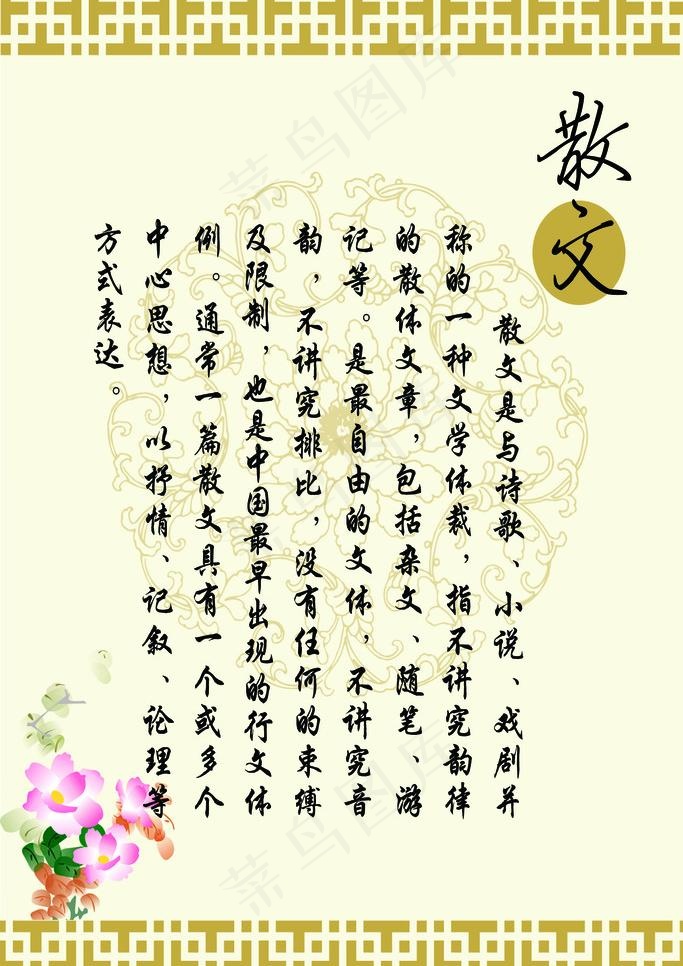 散文
散文是与诗歌、小说、戏剧并
称的一种文学体裁，指不讲究韵律
的散体文章，包括杂文、随笔、游
记等。是最自由的文体，不讲究音
韵，不讲究排比，没有任何的束缚
及限制，也是中国最早出现的行文体
例。通常一篇散文具有一个或多个
中心思想，以抒情、记叙、论理等
方式表达。
菜鸟图库
菜鸟图库
菜鸟图库